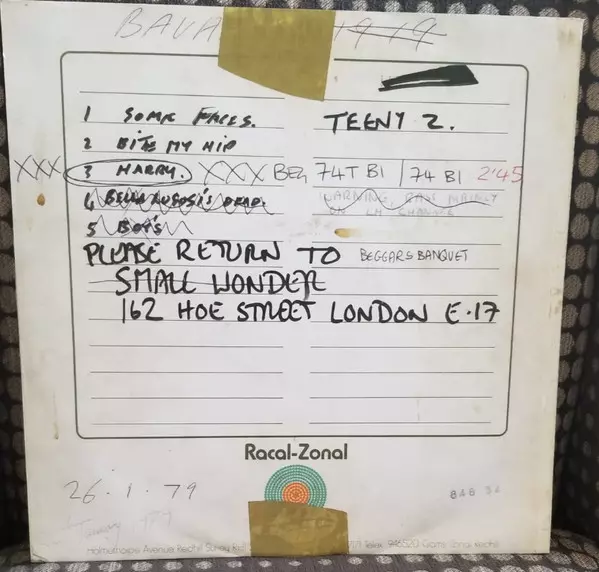 BAUA 1919
1 SOME FACES. TEENY 2.
2 BITE MY HIP
XXX 3 HARRY. XXX BEG 74T B1 / 74 B1 2'45
4 BELA LUGOSI'S DEAD.
WARNING, BASS MAINLY
ON LH CHANNEL
5 BOYS
PLEASE RETURN TO BEGGARS BANQUET
SMALL WONDER
162 HOE STREET LONDON E.17
Racal-Zonal
26.1.79
848
Holmethorpe Avenue Redhill Surrey
Telex 946520 Grams Zonal Redhill